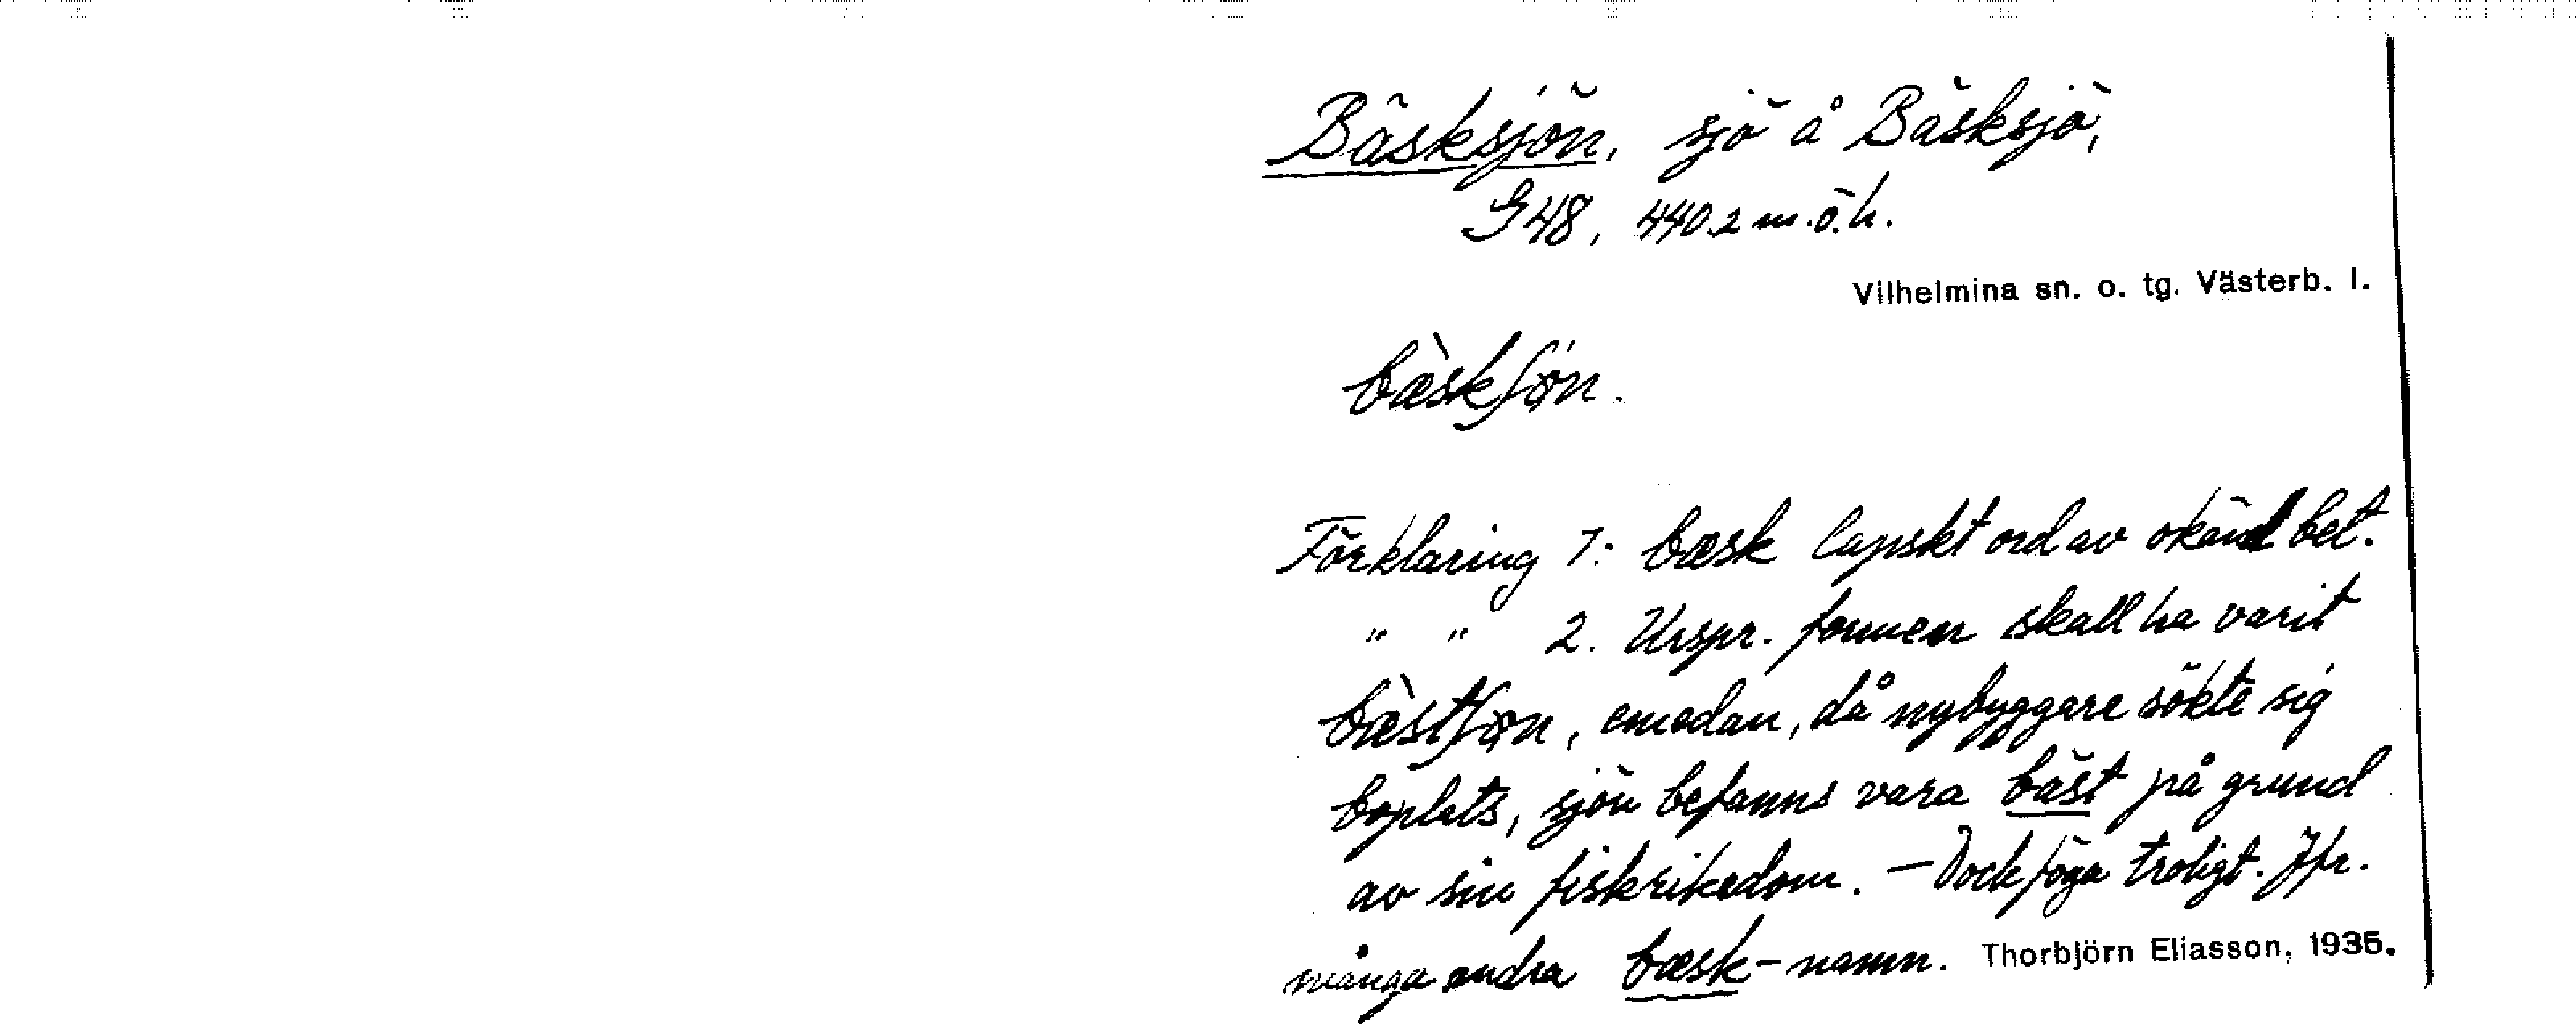 Bäsksjön, sjö å Bäsksjö,
G48, 440.2 m.ö.h.
Vilhelmina sn. o. tg. Västerb. l.
bæ̀skʃøn.
Förklaring 1: bæsk lapskt ord av okänd bet.
" " 2. Urspr. formen skall ha varit
bæ̀stʃøn, emedan, då nybyggare sökte sig
boplats, sjön befanns vara bäst på grund
av sin fiskrikedom. – Dock föga troligt. Jfr.
många andra bæsk-namn. Thorbjörn Eliasson, 1935.